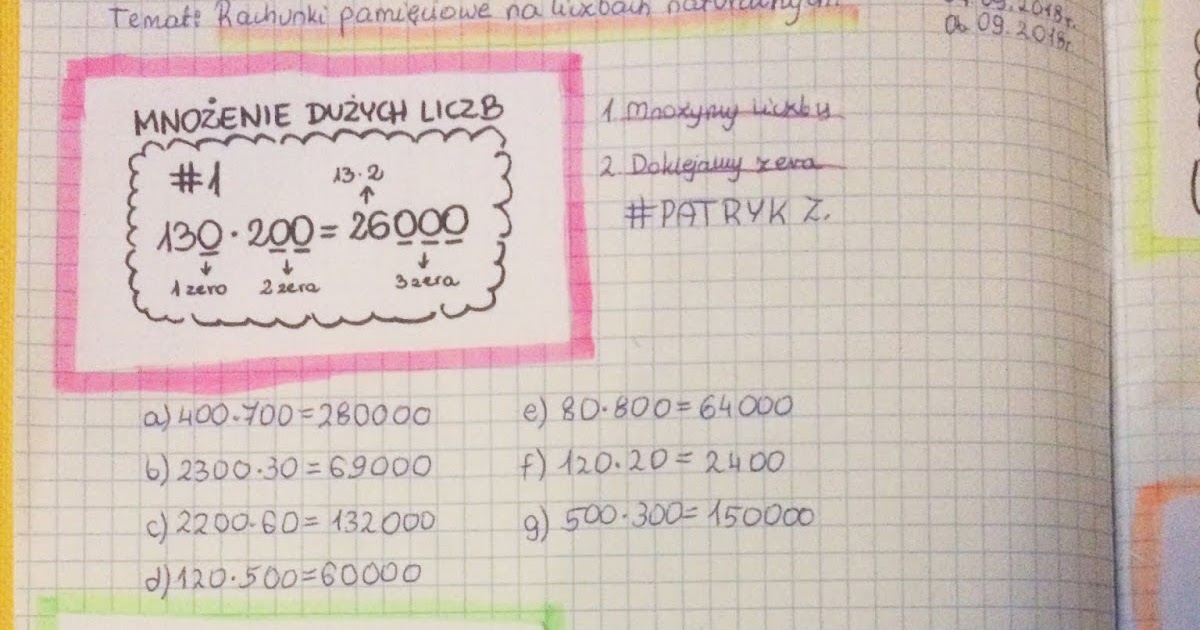 Temat: Rachunki pamięciowe na liczbach naturalnych.
09.2018r.
06.09.2018r.
MNOŻENIE DUŻYCH LICZB
#1
13·2
130·200=26000
1 zero 2 zera 3 zera
1. Mnożymy liczby
2. Doklejamy zera
#PATRYK Z.
a) 400·700=280000
b) 2300·30=69000
c) 2200·60=132000
d) 120·500=60000
e) 80·800=64000
f) 120·20=2400
g) 500·300=150000